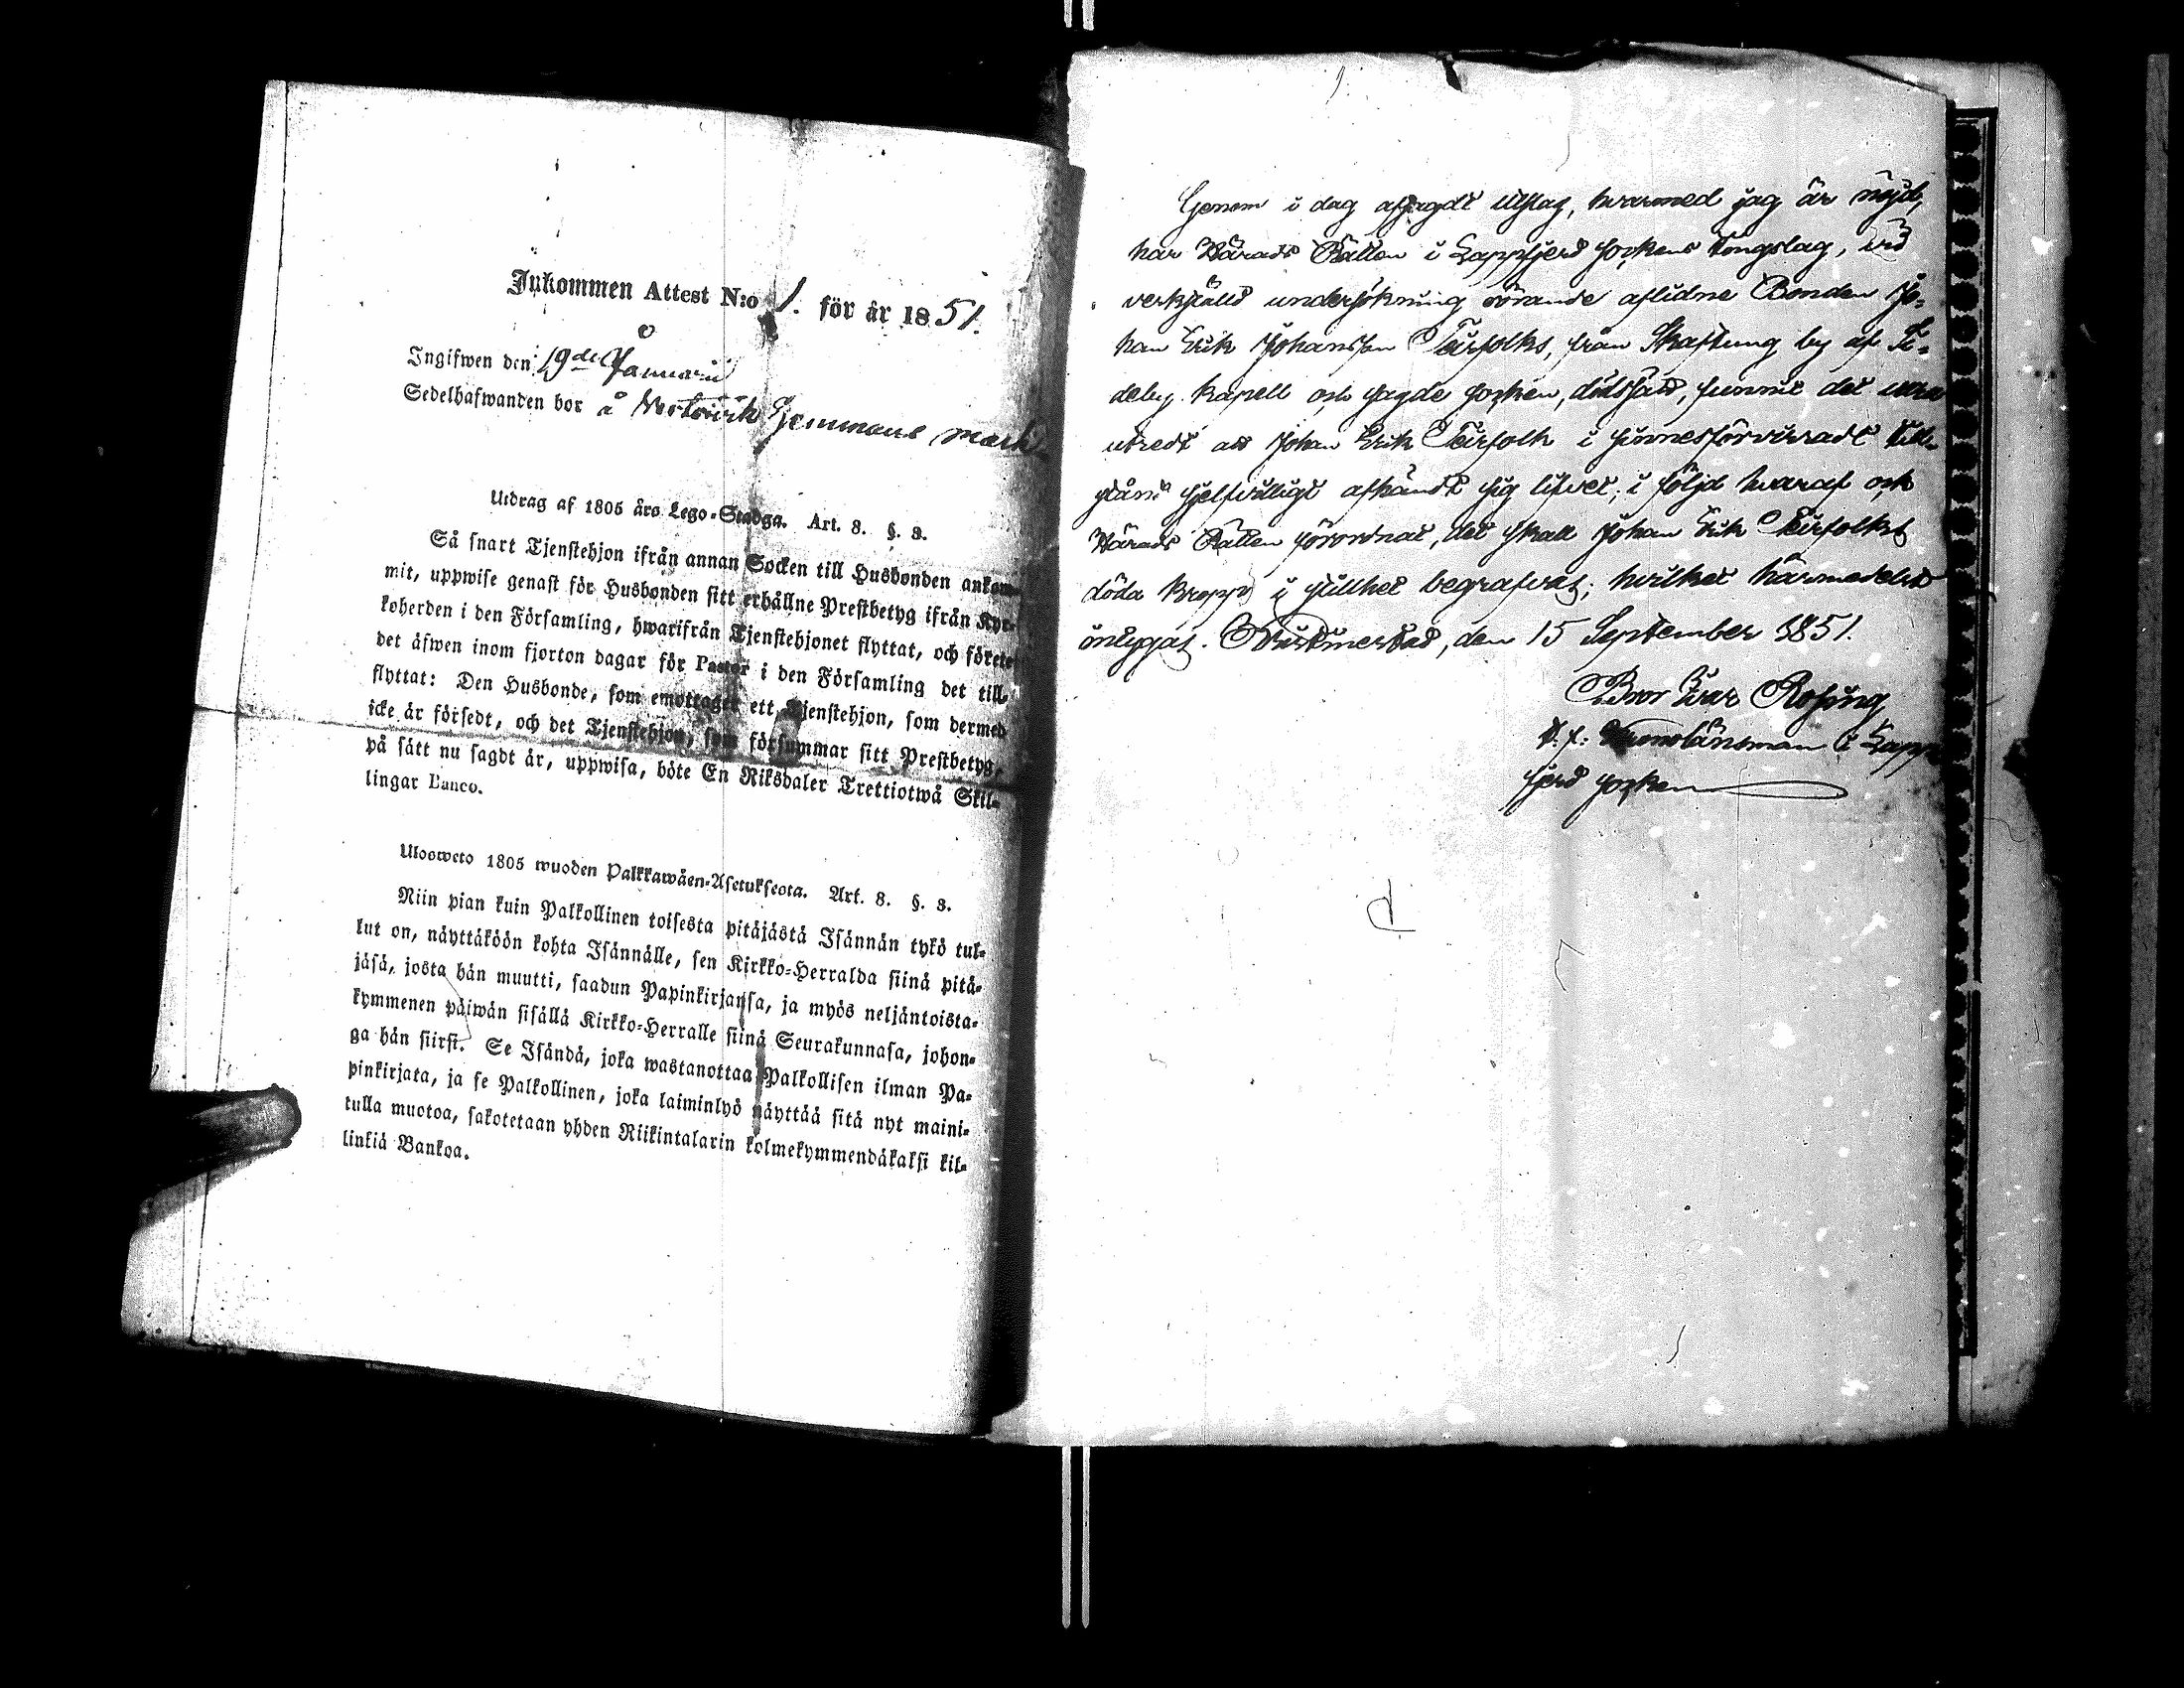 Inkommen Attest N:o 1. för år 1851.
Ingifwen den 19de Januarii
Sedelhafwanden bor å Westervik Hemmans mark
Utdrag af 1805 års Lego-Stadga. Art. 8. §. 3.
Så snart Tjenstehjon ifrån annan Socken till Husbonden ankom-
mit, uppwise genast för Husbonden sitt erhållne Prestbetyg ifrån Kyr-
koherden i den Församling, hwarifrån Tjenstehjonet flyttat, och förete
det äfwen inom fjorton dagar för Pastor i den Församling det till-
flyttat: Den Husbonde, som emottager ett Tjenstehjon, som dermed
icke är försedt, och det Tjenstehjon, som försummar sitt Prestbetyg,
på sätt nu sagdt är, uppwisa, böte En Riksdaler Trettiotwå Skil-
lingar Banco.
Ulosweto 1805 wuoden Palkkawäen-Asetuksesta. Art. 8. §. 3.
Niin pian kuin Palkollinen toisesta pitäjästä Isännän tykö tul-
lut on, näyttäköön kohta Isännälle, sen Kirkko-Herralda siinä pitä-
jäsä, josta hän muutti, saadun Papinkirjansa, ja myös neljäntoista-
kymmenen päiwän sisällä Kirkko-Herralle siinä Seurakunnasa, johon-
ga hän siirsi. Se Isändä, joka wastanottaa Palkollisen ilman Pa-
pinkirjata, ja se Palkollinen, joka laiminlyö näyttää sitä nyt maini-
tulla muotoa, sakotetaan yhden Riikintalarin kolmekymmendäkaksi kil-
linkiä Bankoa.
Genom i dag afsagdt utslag, hvarmed jag är nöjd,
har Härads Rätten i Lappfjerd Sockens tingslag, vid
verkställd undersökning rörande aflidne Bonden Jo-
han Erik Johansson Teirfolks, från Skaftung by af Si-
deby kapell och sagde socken, dödssätt, funnit det vara
utredt att Johan Erik Teirfolk i sinnesförvirradt till-
stånd sjelfvilligt afhändt sig lifvet; i följd hvaraf och
Härads Rätten förordnat, det skall Johan Erik Teirfolks
döda kropp i stillhet begrafvas; hvilket härmedelst
intygas. Christinestad, den 15 September 1851.
Bror Ivar Rosing
T. f. Kronolänsman i Lapp
fjerd socken